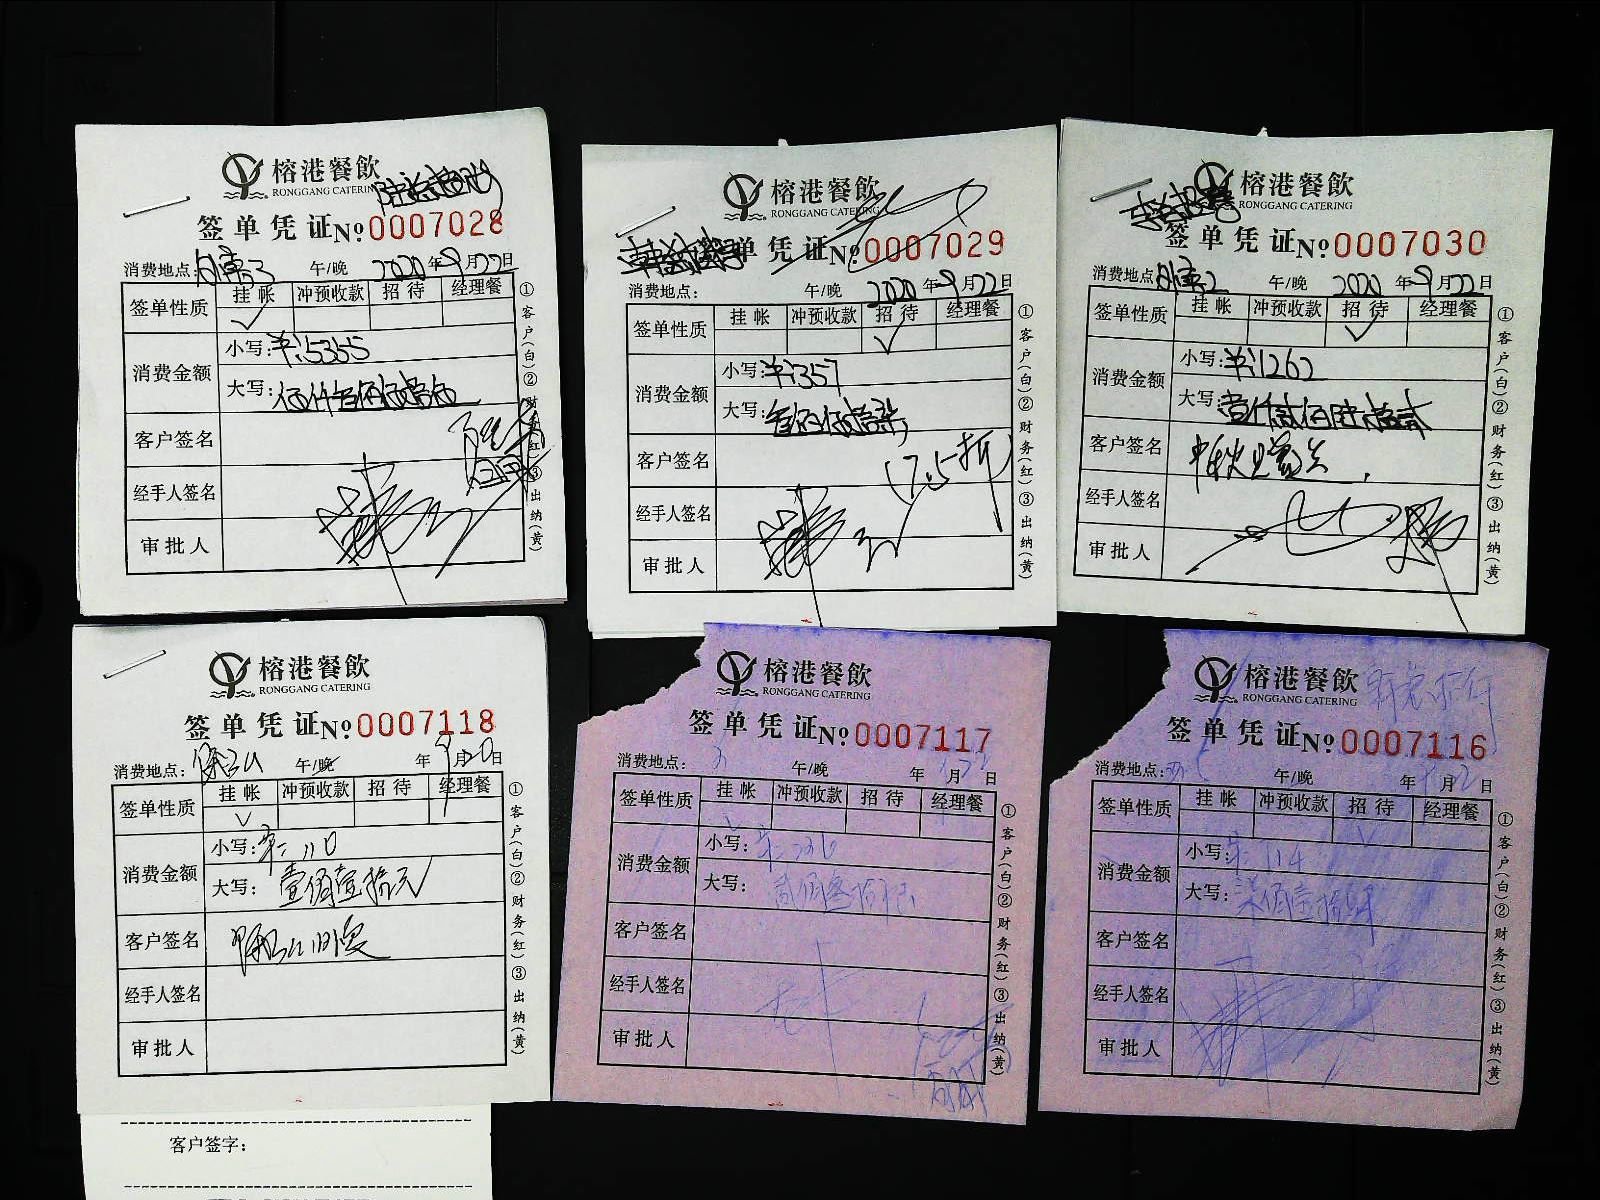 榕港餐飲
RONGGANG CATERING
签单凭证 No 0007028
消费地点： 午/晚 2020年9月22日
签单性质 挂帐 冲预收款 招待 经理餐
✓
消费金额 小写：￥:5355
大写：伍仟叁佰伍拾伍
客户签名
经手人签名
审批人
①客户(白)②财务(红)③出纳(黄)
榕港餐飲
RONGGANG CATERING
单凭证 No 0007029
消费地点： 午/晚 2020年9月22日
签单性质 挂帐 冲预收款 招待 经理餐
✓
消费金额 小写：￥:357
大写：叁佰伍拾柒
客户签名 (7.5折)
经手人签名
审批人
①客户(白)②财务(红)③出纳(黄)
榕港餐飲
RONGGANG CATERING
签单凭证 No 0007030
消费地点： 午/晚 2020年9月22日
签单性质 挂帐 冲预收款 招待 经理餐
✓
消费金额 小写：￥:1262
大写：壹仟贰佰陆拾贰
客户签名
经手人签名
审批人
①客户(白)②财务(红)③出纳(黄)
榕港餐飲
RONGGANG CATERING
签单凭证 No 0007118
消费地点： 午/晚 年9月20日
签单性质 挂帐 冲预收款 招待 经理餐
✓
消费金额 小写：￥:110
大写：壹佰壹拾元
客户签名
经手人签名
审批人
①客户(白)②财务(红)③出纳(黄)
客户签字：
榕港餐飲
RONGGANG CATERING
签单凭证 No 0007117
消费地点： 午/晚 年 月 日
签单性质 挂帐 冲预收款 招待 经理餐
✓
消费金额 小写：
大写：
客户签名
经手人签名
审批人
①客户(白)②财务(红)③出纳(黄)
榕港餐飲
RONGGANG CATERING
签单凭证 No 0007116
消费地点： 午/晚 年 月 日
签单性质 挂帐 冲预收款 招待 经理餐
✓
消费金额 小写：￥:714
大写：柒佰壹拾肆
客户签名
经手人签名
审批人
①客户(白)②财务(红)③出纳(黄)